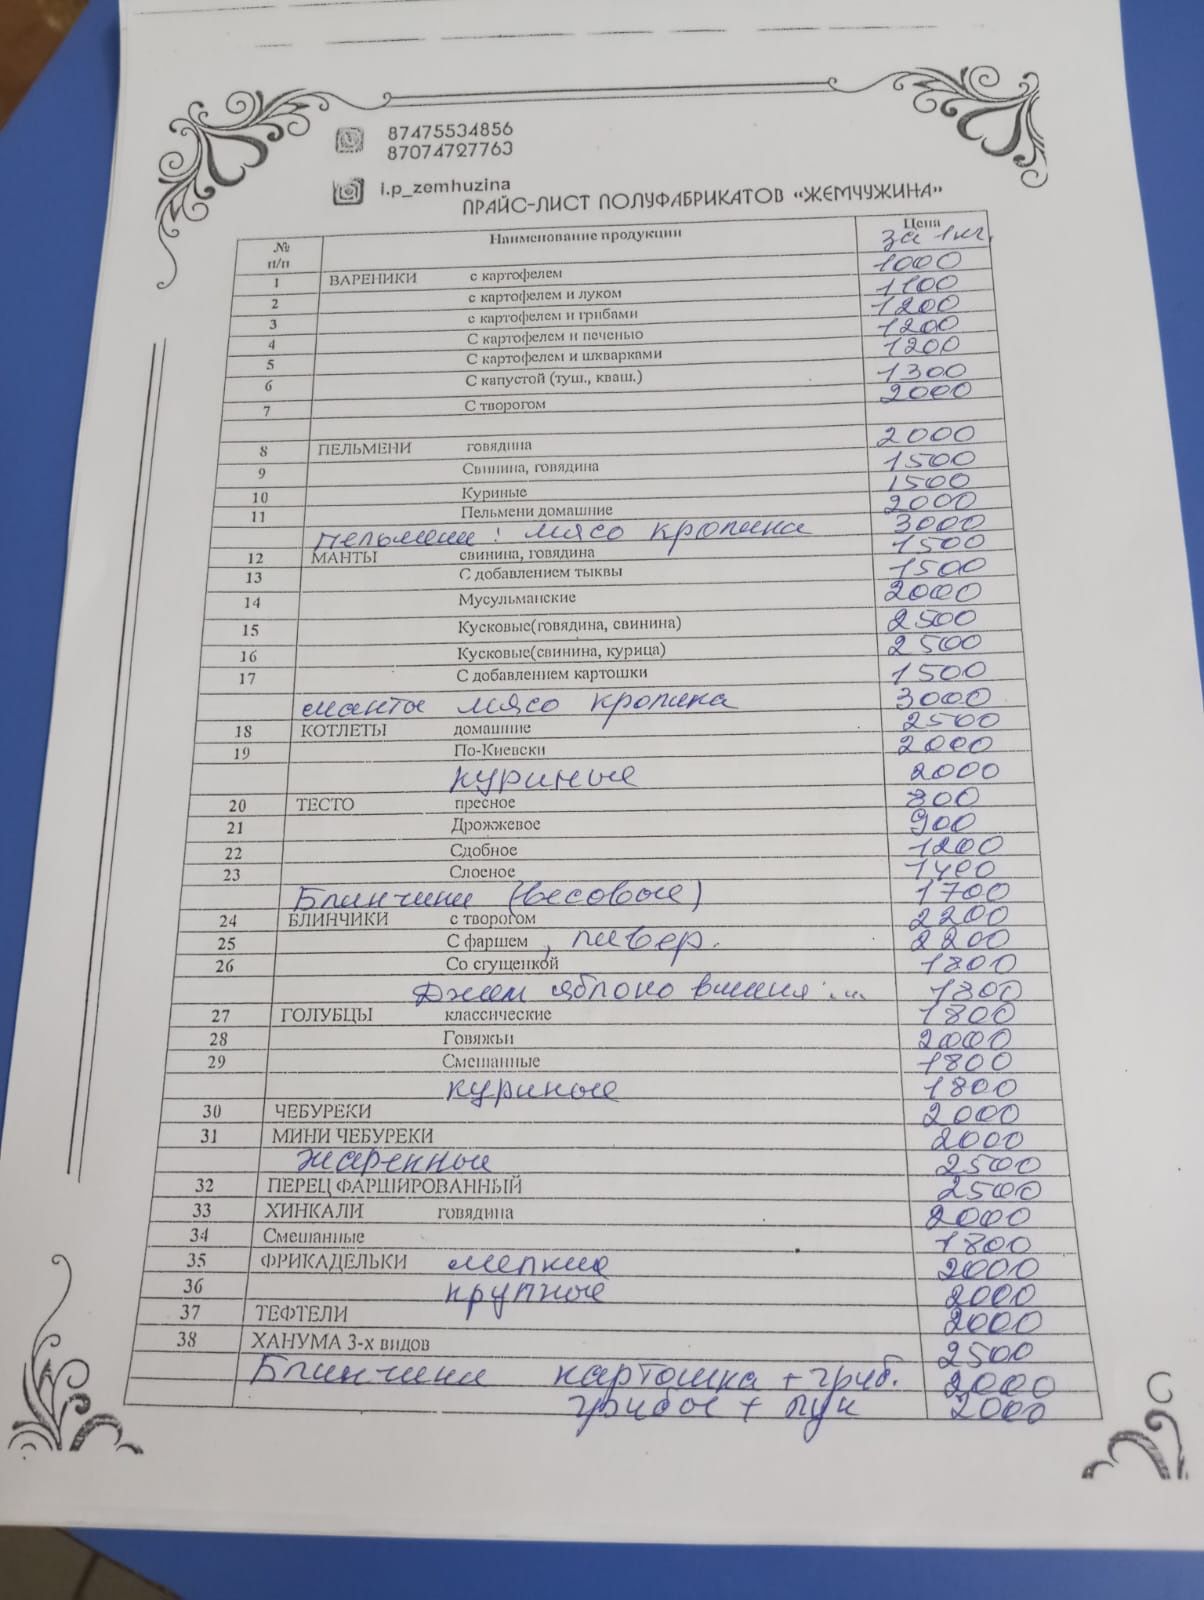 87475534856
87074727763
i.p_zemhuzina
ПРАЙС-ЛИСТ ПОЛУФАБРИКАТОВ «ЖЕМЧУЖИНА»
№ п/п Наименование продукции Цена за 1кг,
1 ВАРЕНИКИ с картофелем 1000
2 с картофелем и луком 1100
3 с картофелем и грибами 1200
4 С картофелем и печенью 1200
5 С картофелем и шкварками 1200
6 С капустой (туш., кваш.) 1300
7 С творогом 2000
8 ПЕЛЬМЕНИ говядина 2000
9 Свинина, говядина 1500
10 Куриные 1500
11 Пельмени домашние 2000
Пельмени: мясо кролика 3000
12 МАНТЫ свинина, говядина 1500
13 С добавлением тыквы 1500
14 Мусульманские 2000
15 Кусковые(говядина, свинина) 2500
16 Кусковые(свинина, курица) 2500
17 С добавлением картошки 1500
манты мясо кролика 3000
18 КОТЛЕТЫ домашние 2500
19 По-Киевски 2000
куриные 2000
20 ТЕСТО пресное 800
21 Дрожжевое 900
22 Сдобное 1200
23 Слоеное 1400
Блинчики (весовые) 1700
24 БЛИНЧИКИ с творогом 2200
25 С фаршем, ливер. 2200
26 Со сгущенкой 1800
Джем яблоко вишня ... 1800
27 ГОЛУБЦЫ классические 1800
28 Говяжьи 2000
29 Смешанные 1800
куриные 1800
30 ЧЕБУРЕКИ 2000
31 МИНИ ЧЕБУРЕКИ 2000
жаренные 2500
32 ПЕРЕЦ ФАРШИРОВАННЫЙ 2500
33 ХИНКАЛИ говядина 2000
34 Смешанные 1800
35 ФРИКАДЕЛЬКИ мелкие 2000
36 крупные 2000
37 ТЕФТЕЛИ 2000
38 ХАНУМА 3-х видов 2500
Блинчики картошка + гриб. 2000
грибы + лук 2000